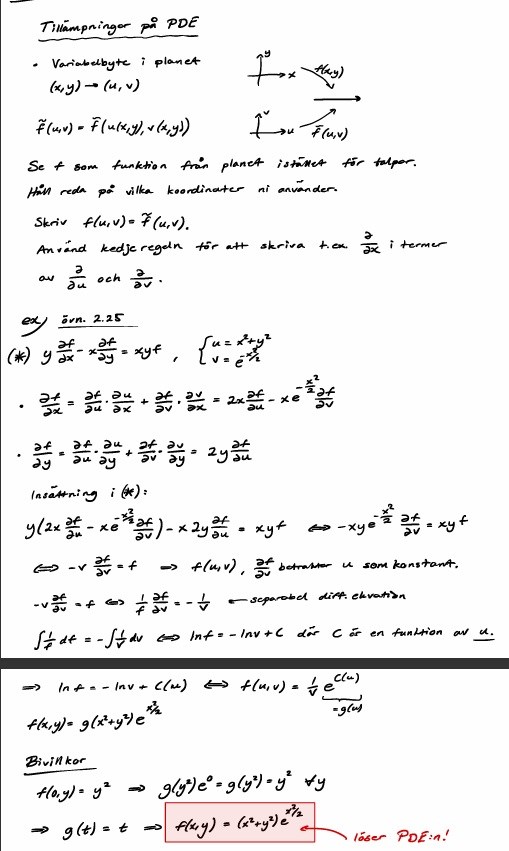 Tillämpningar på PDE
• Variabelbyte i planet
(x,y) → (u,v)
y
x
f(x,y)
f̃(u,v) = f̃(u(x,y), v(x,y))
v
u
f̃(u,v)
Se f som funktion från planet istället för talpar.
Håll reda på vilka koordinater ni använder.
Skriv f(u,v) = f̃(u,v).
Använd kedjeregeln för att skriva t.ex. ∂/∂x i termer
av ∂/∂u och ∂/∂v.
ex) övn. 2.25
(*) y ∂f/∂x - x ∂f/∂y = xyf , { u = x²+y²
v = e^(-x²/2)
• ∂f/∂x = ∂f/∂u · ∂u/∂x + ∂f/∂v · ∂v/∂x = 2x ∂f/∂u - xe^(-x²/2) ∂f/∂v
• ∂f/∂y = ∂f/∂u · ∂u/∂y + ∂f/∂v · ∂v/∂y = 2y ∂f/∂u
Insättning i (*):
y(2x ∂f/∂u - xe^(-x²/2) ∂f/∂v) - x 2y ∂f/∂u = xyf ⟺ -xye^(-x²/2) ∂f/∂v = xyf
⟺ -v ∂f/∂v = f ⟹ f(u,v), ∂f/∂v betraktar u som konstant.
-v ∂f/∂v = f ⟺ 1/f ∂f/∂v = -1/v ← separabel diff. ekvation
∫ 1/f df = -∫ 1/v dv ⟺ ln f = -ln v + C där C är en funktion av u.
⟹ ln f = -ln v + C(u) ⟺ f(u,v) = 1/v e^(C(u))
= g(u)
f(x,y) = g(x²+y²)e^(x²/2)
Bivillkor
f(0,y) = y² ⟹ g(y²)e⁰ = g(y²) = y² ∀y
⟹ g(t) = t ⟹ f(x,y) = (x²+y²)e^(x²/2)
löser PDE:n!